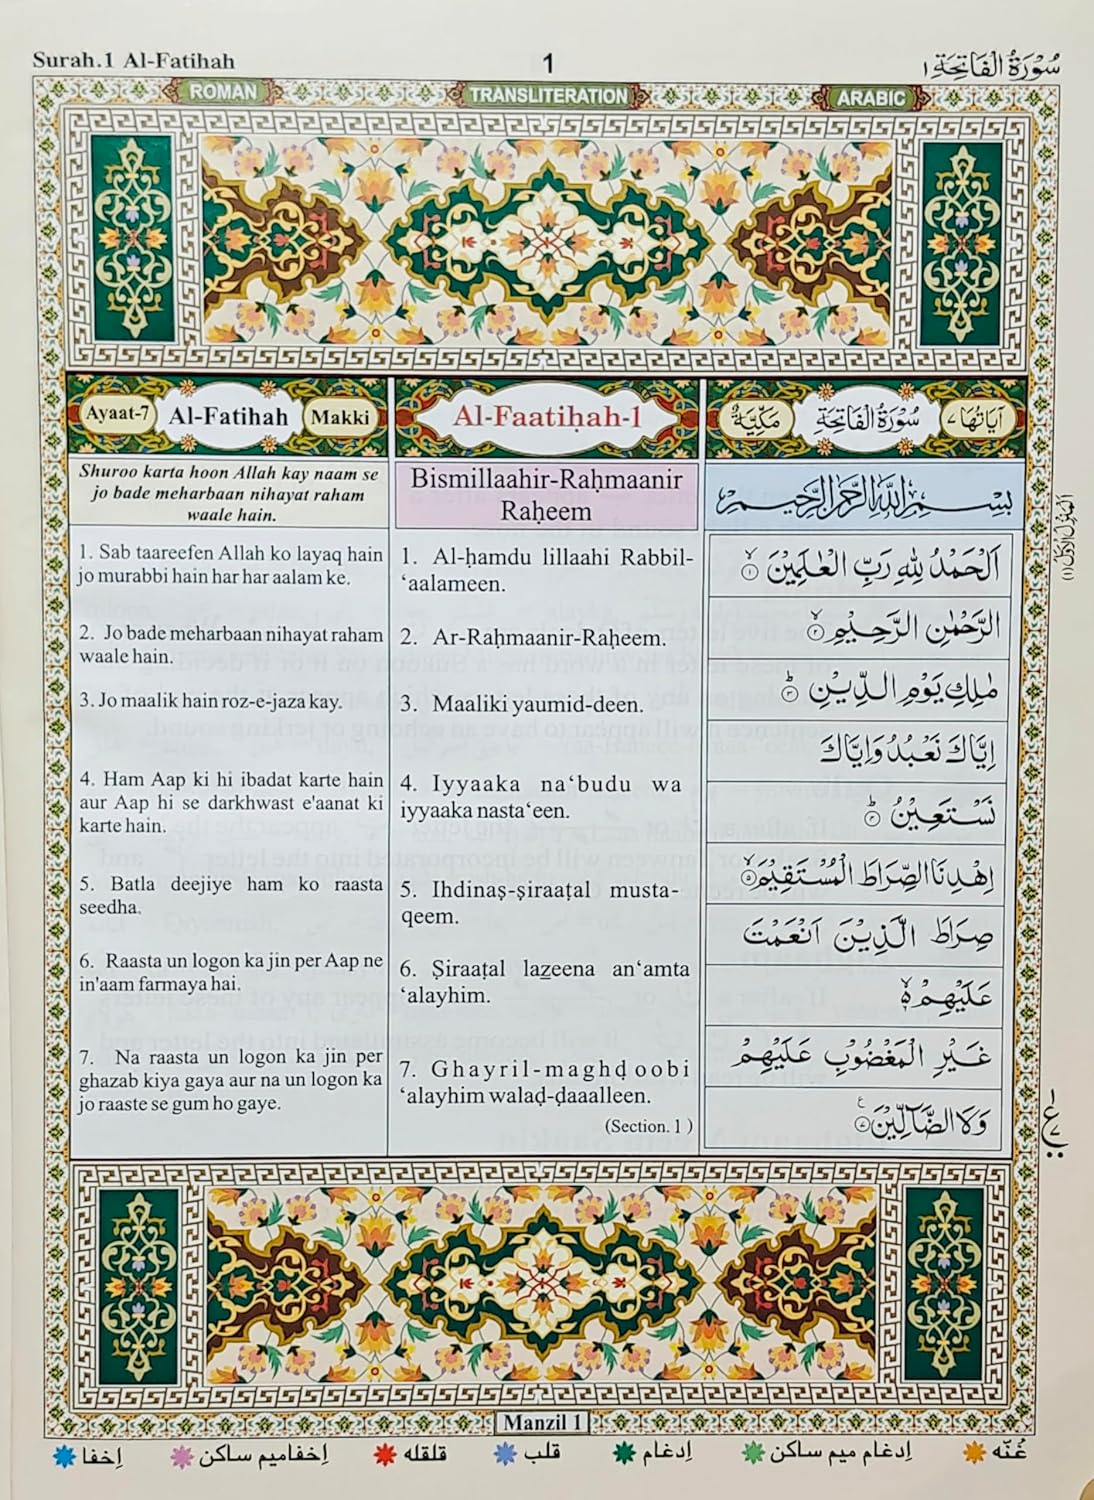 Surah.1 Al-Fatihah
1
سُوْرَةُ الْفَاتِحَةِ ١
ROMAN
TRANSLITERATION
ARABIC
Ayaat-7
Al-Fatihah
Makki
Al-Faatiḥah-1
مَكِّيَّةٌ
سُوْرَةُ الْفَاتِحَةِ
اٰيَاتُهَا ٧
Shuroo karta hoon Allah kay naam se
jo bade meharbaan nihayat raham
waale hain.
1. Sab taareefen Allah ko layaq hain
jo murabbi hain har har aalam ke.
2. Jo bade meharbaan nihayat raham
waale hain.
3. Jo maalik hain roz-e-jaza kay.
4. Ham Aap ki hi ibadat karte hain
aur Aap hi se darkhwast e'aanat ki
karte hain.
5. Batla deejiye ham ko raasta
seedha.
6. Raasta un logon ka jin per Aap ne
in'aam farmaya hai.
7. Na raasta un logon ka jin per
ghazab kiya gaya aur na un logon ka
jo raaste se gum ho gaye.
Bismillaahir-Raḥmaanir
Raḥeem
1. Al-ḥamdu lillaahi Rabbil-
‘aalameen.
2. Ar-Raḥmaanir-Raḥeem.
3. Maaliki yaumid-deen.
4. Iyyaaka na‘budu wa
iyyaaka nasta‘een.
5. Ihdinaṣ-ṣiraaṭal musta-
qeem.
6. Ṣiraaṭal lazeena an‘amta
‘alayhim.
7. Ghayril-maghḍoobi
‘alayhim walaḍ-ḍaaalleen.
(Section. 1)
بِسْمِ اللّٰهِ الرَّحْمٰنِ الرَّحِيْمِ
اَلْحَمْدُ لِلّٰهِ رَبِّ الْعٰلَمِيْنَ ۙ‏ ١
الرَّحْمٰنِ الرَّحِيْمِ ۙ‏ ٢
مٰلِكِ يَوْمِ الدِّيْنِ ؕ‏ ٣
اِيَّاكَ نَعْبُدُ وَاِيَّاكَ
نَسْتَعِيْنُ ؕ‏ ٤
اِهْدِنَا الصِّرَاطَ الْمُسْتَقِيْمَ ۙ‏ ٥
صِرَاطَ الَّذِيْنَ اَنْعَمْتَ
عَلَيْهِمْ ۙ ۬
غَيْرِ الْمَغْضُوْبِ عَلَيْهِمْ
وَلَا الضَّآلِّيْنَ ٧
ع
Manzil 1
غُنّه
اِدغام میم ساکن
اِدغام
قلب
قلقله
اِخفا میم ساکن
اِخفا